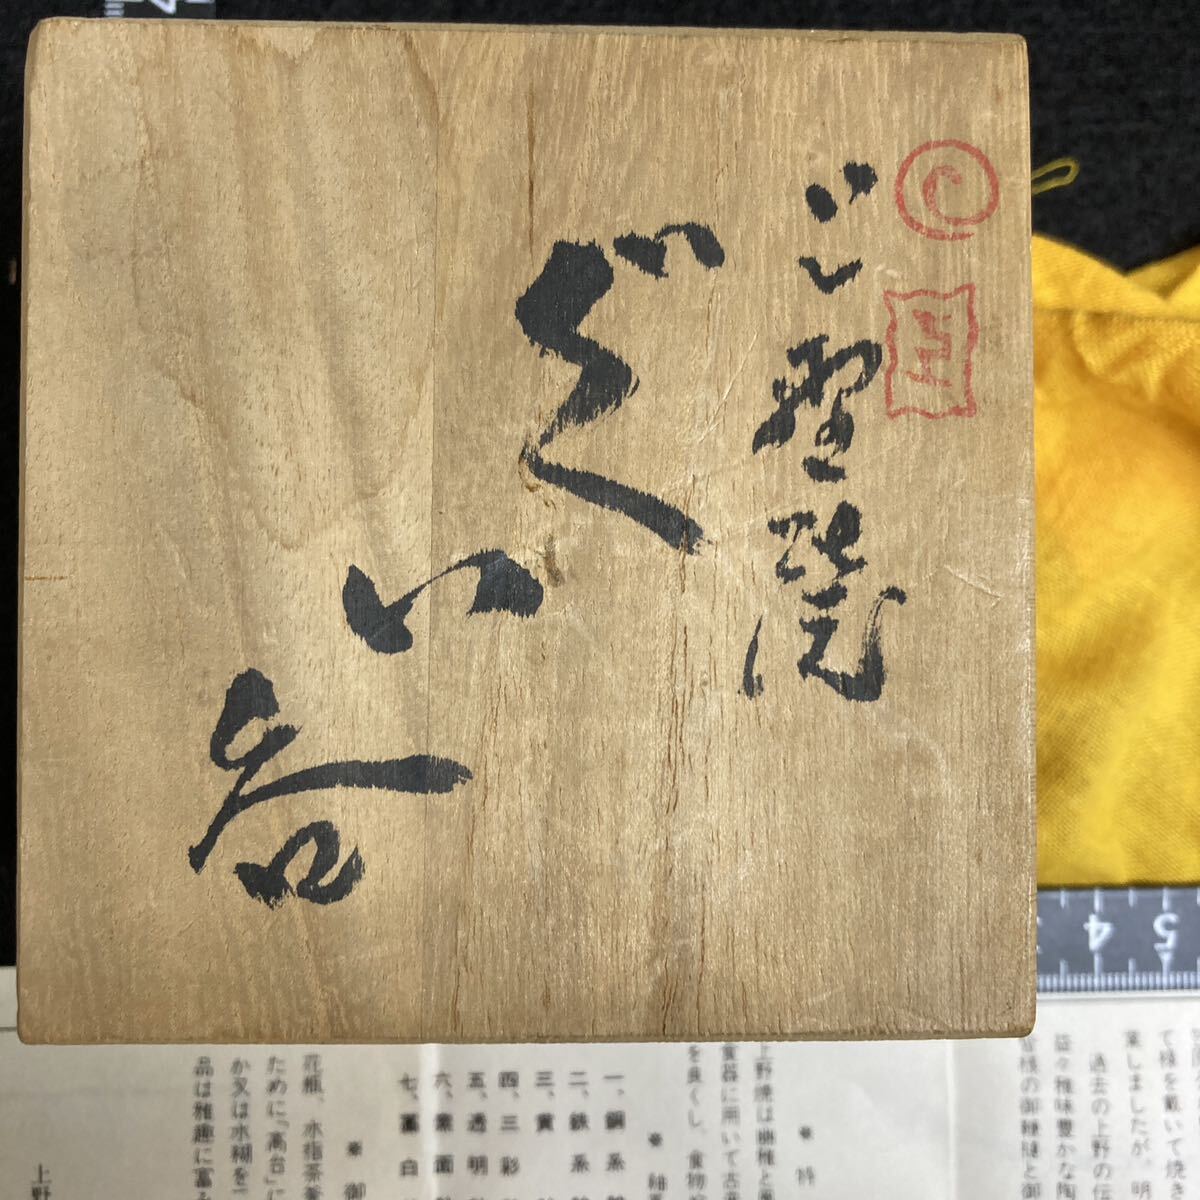 上野焼
ぐい呑
4 5
て様を戴いて焼き
業しましたが、明
過去の上野の伝
益々雅味豊かな陶
様の御鞭撻と御
※ 特
上野焼は幽雅と
食器に用いて古
を良くし、食物
※ 釉
一、銅系
二、鉄系
三、黄
四、三彩
五、透明
六、紫
七、藁白
※ 御
花瓶、水指茶
ために「高台」に
か又は水糊を
品は雅趣に富
上野